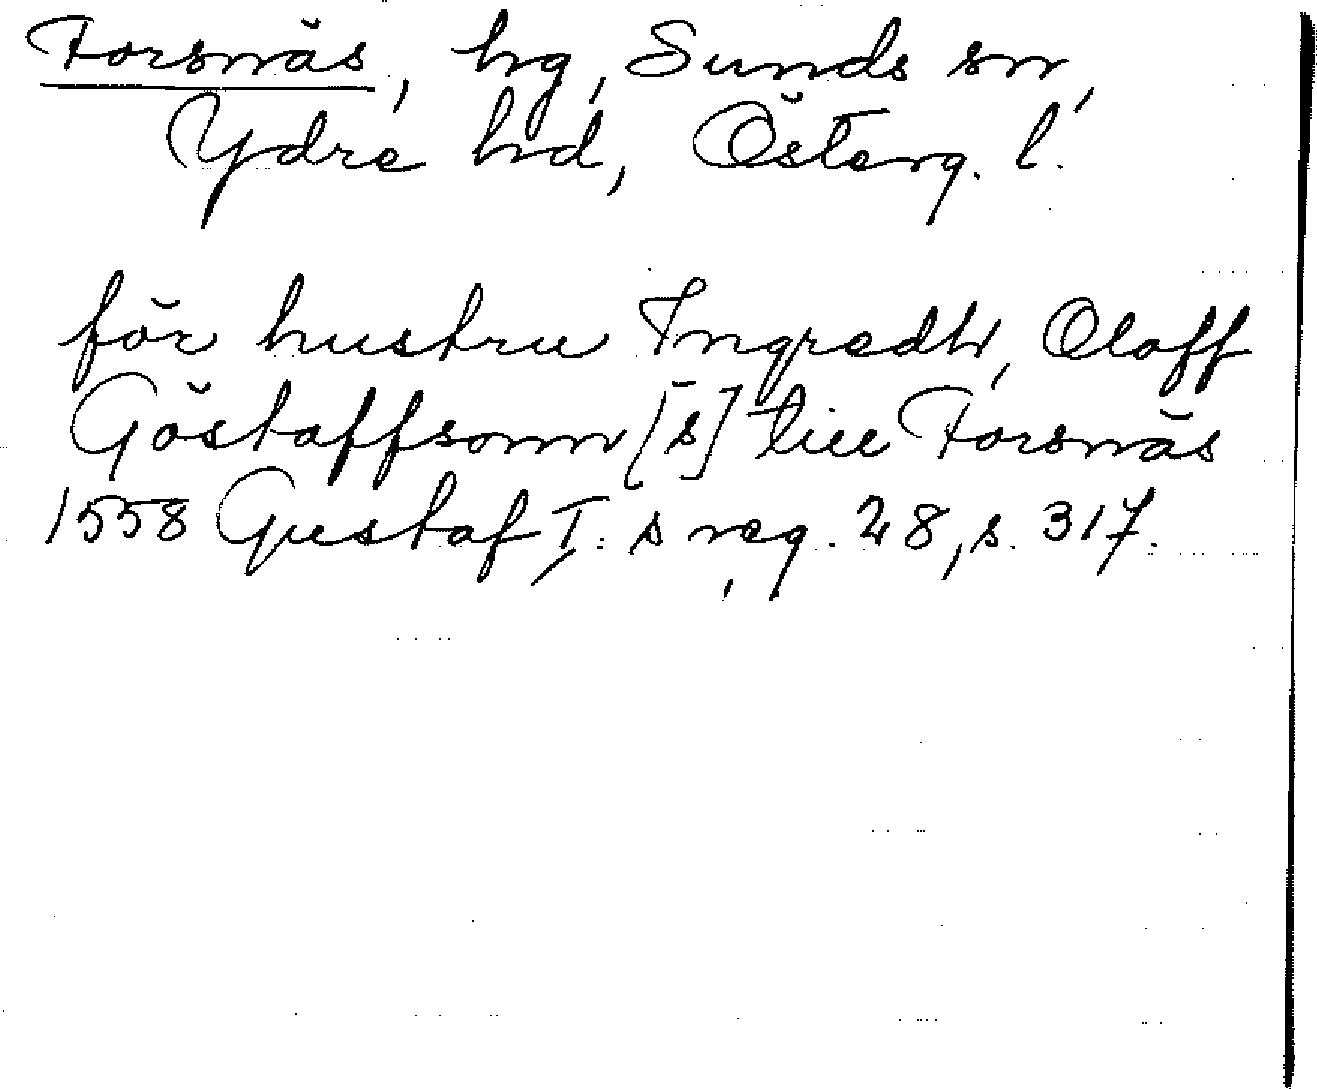 Forsnäs, hg, Sunds sn,
Ydre hd, Österg. l.
för hustru Ingredh, Oloff
Göstaffsonn [s] till Forsnäs
1558 Gustaf I:s reg. 28, s. 317.